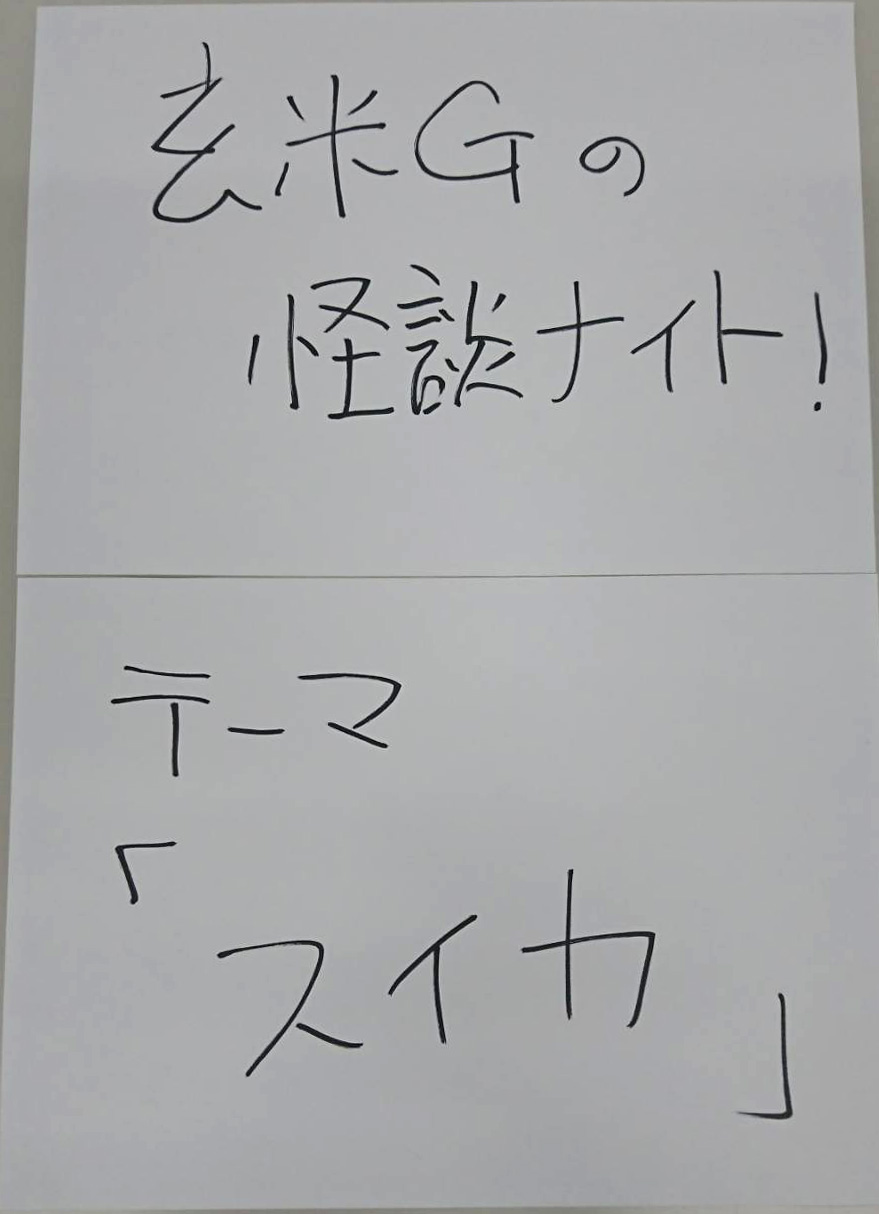 玄米Gの
怪談ナイト!
テーマ
「
スイカ
」